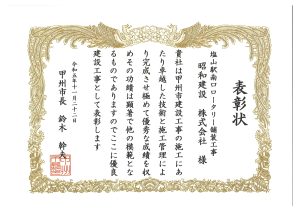 表彰状
塩山駅南口ロータリー舗装工事
昭和建設 株式会社 様
貴社は甲州市建設工事の施工にあ
たり卓越した技術と施工管理によ
り完成させ極めて優秀な成績を収
めその功績は顕著で他の模範とな
るものでありますのでここに優良
建設工事として表彰します
令和五年十一月二十二日
甲州市長 鈴木 幹夫